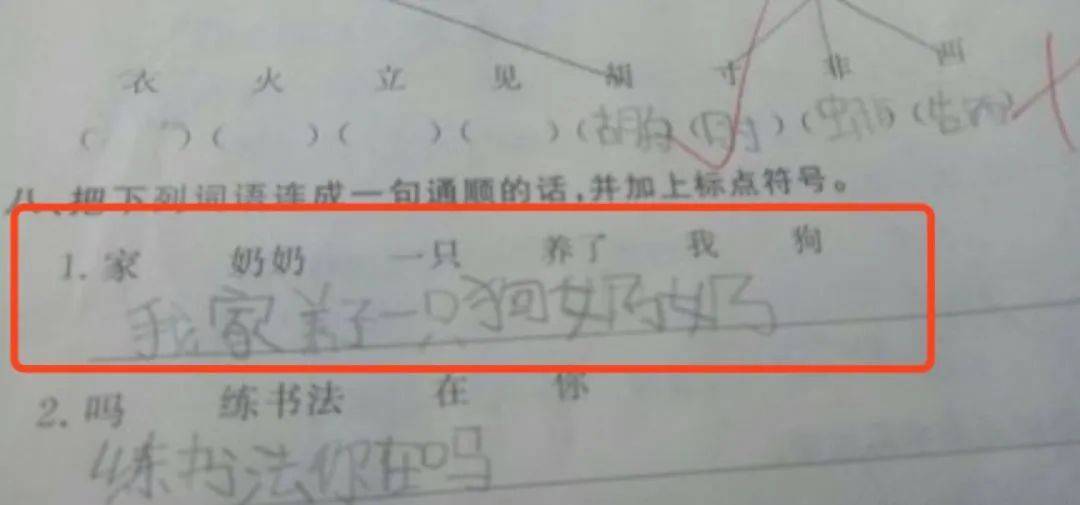 衣 火 立 见 胡 寸 非 西
( )( )( )( )(胡月)(时)(虫)(告)
八、把下列词语连成一句通顺的话,并加上标点符号。
1. 家 奶奶 一只 养了 我 狗
我家养了一只狗奶奶
2. 吗 练书法 在 你
练书法你在吗